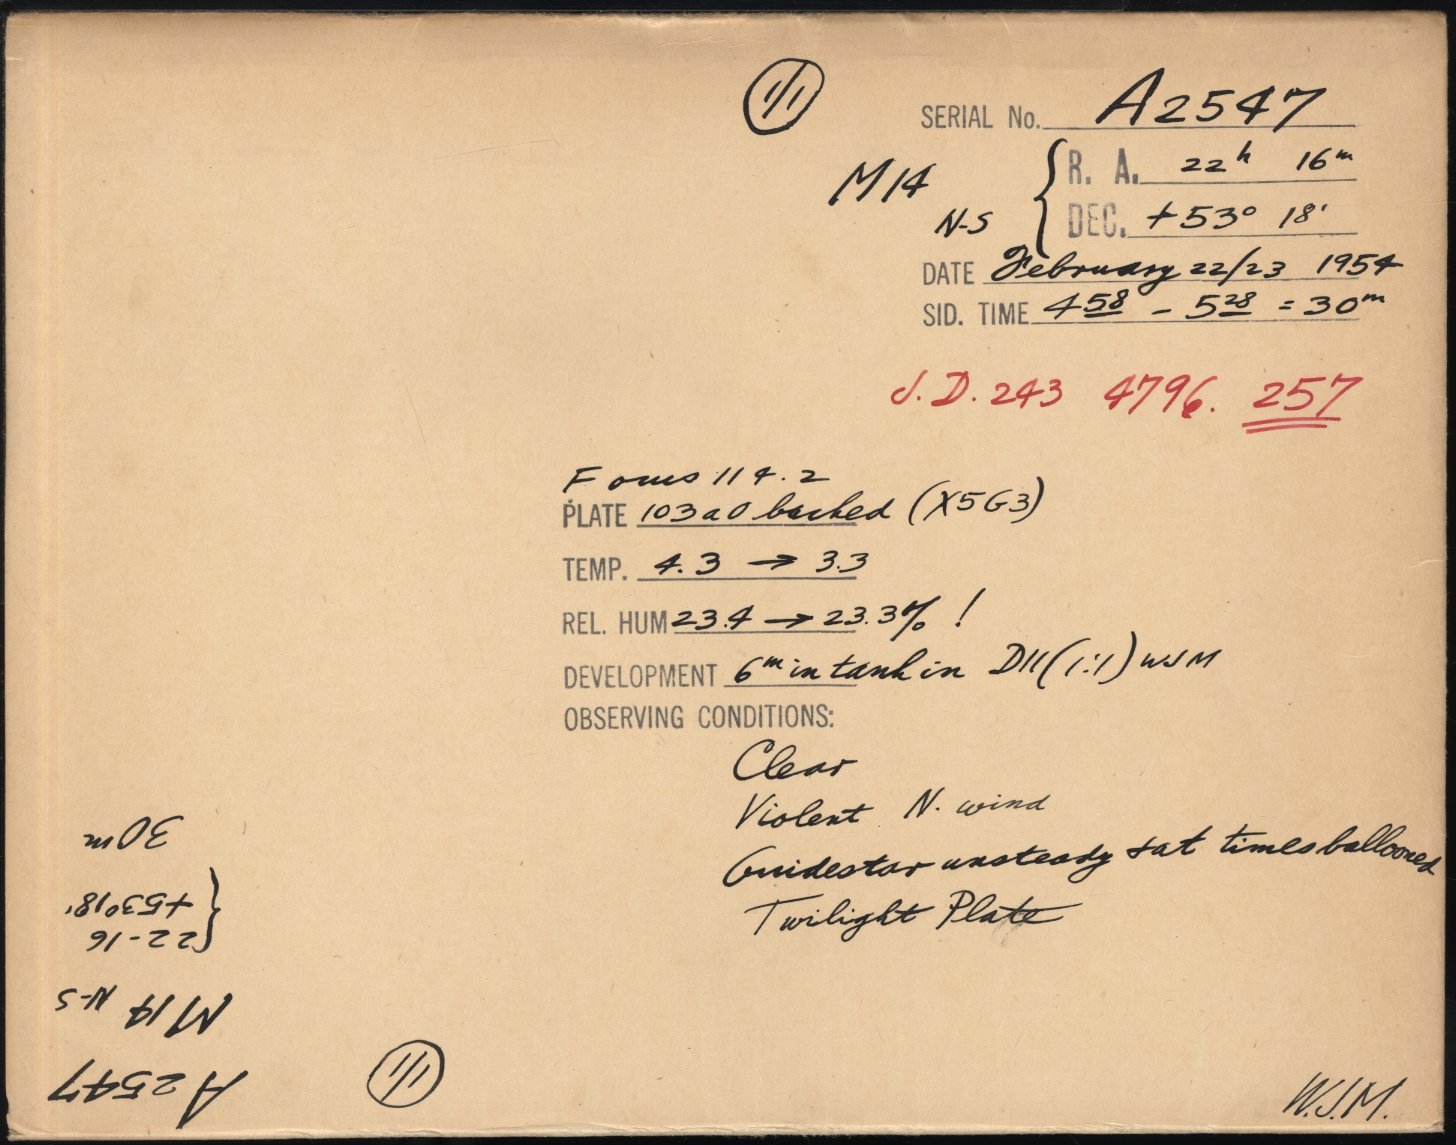 111
SERIAL No. A2547
M14 N-S { R. A. 22h 16m
DEC. +53° 18'
DATE February 22/23 1954
SID. TIME 4 58 - 5 28 = 30m
J.D. 243 4796. 257
Focus 114.2
PLATE 103a0 backed (X5G3)
TEMP. 4.3 → 3.3
REL. HUM 23.4 → 23.3% !
DEVELOPMENT 6m in tank in D11 (1:1) WJM
OBSERVING CONDITIONS:
Clear
Violent N. wind
Guidestar unsteady & at times ballooned
Twilight Plate
A2547
M14 N-S
{ 22-16
+53°18'
30m
111
W.J.M.